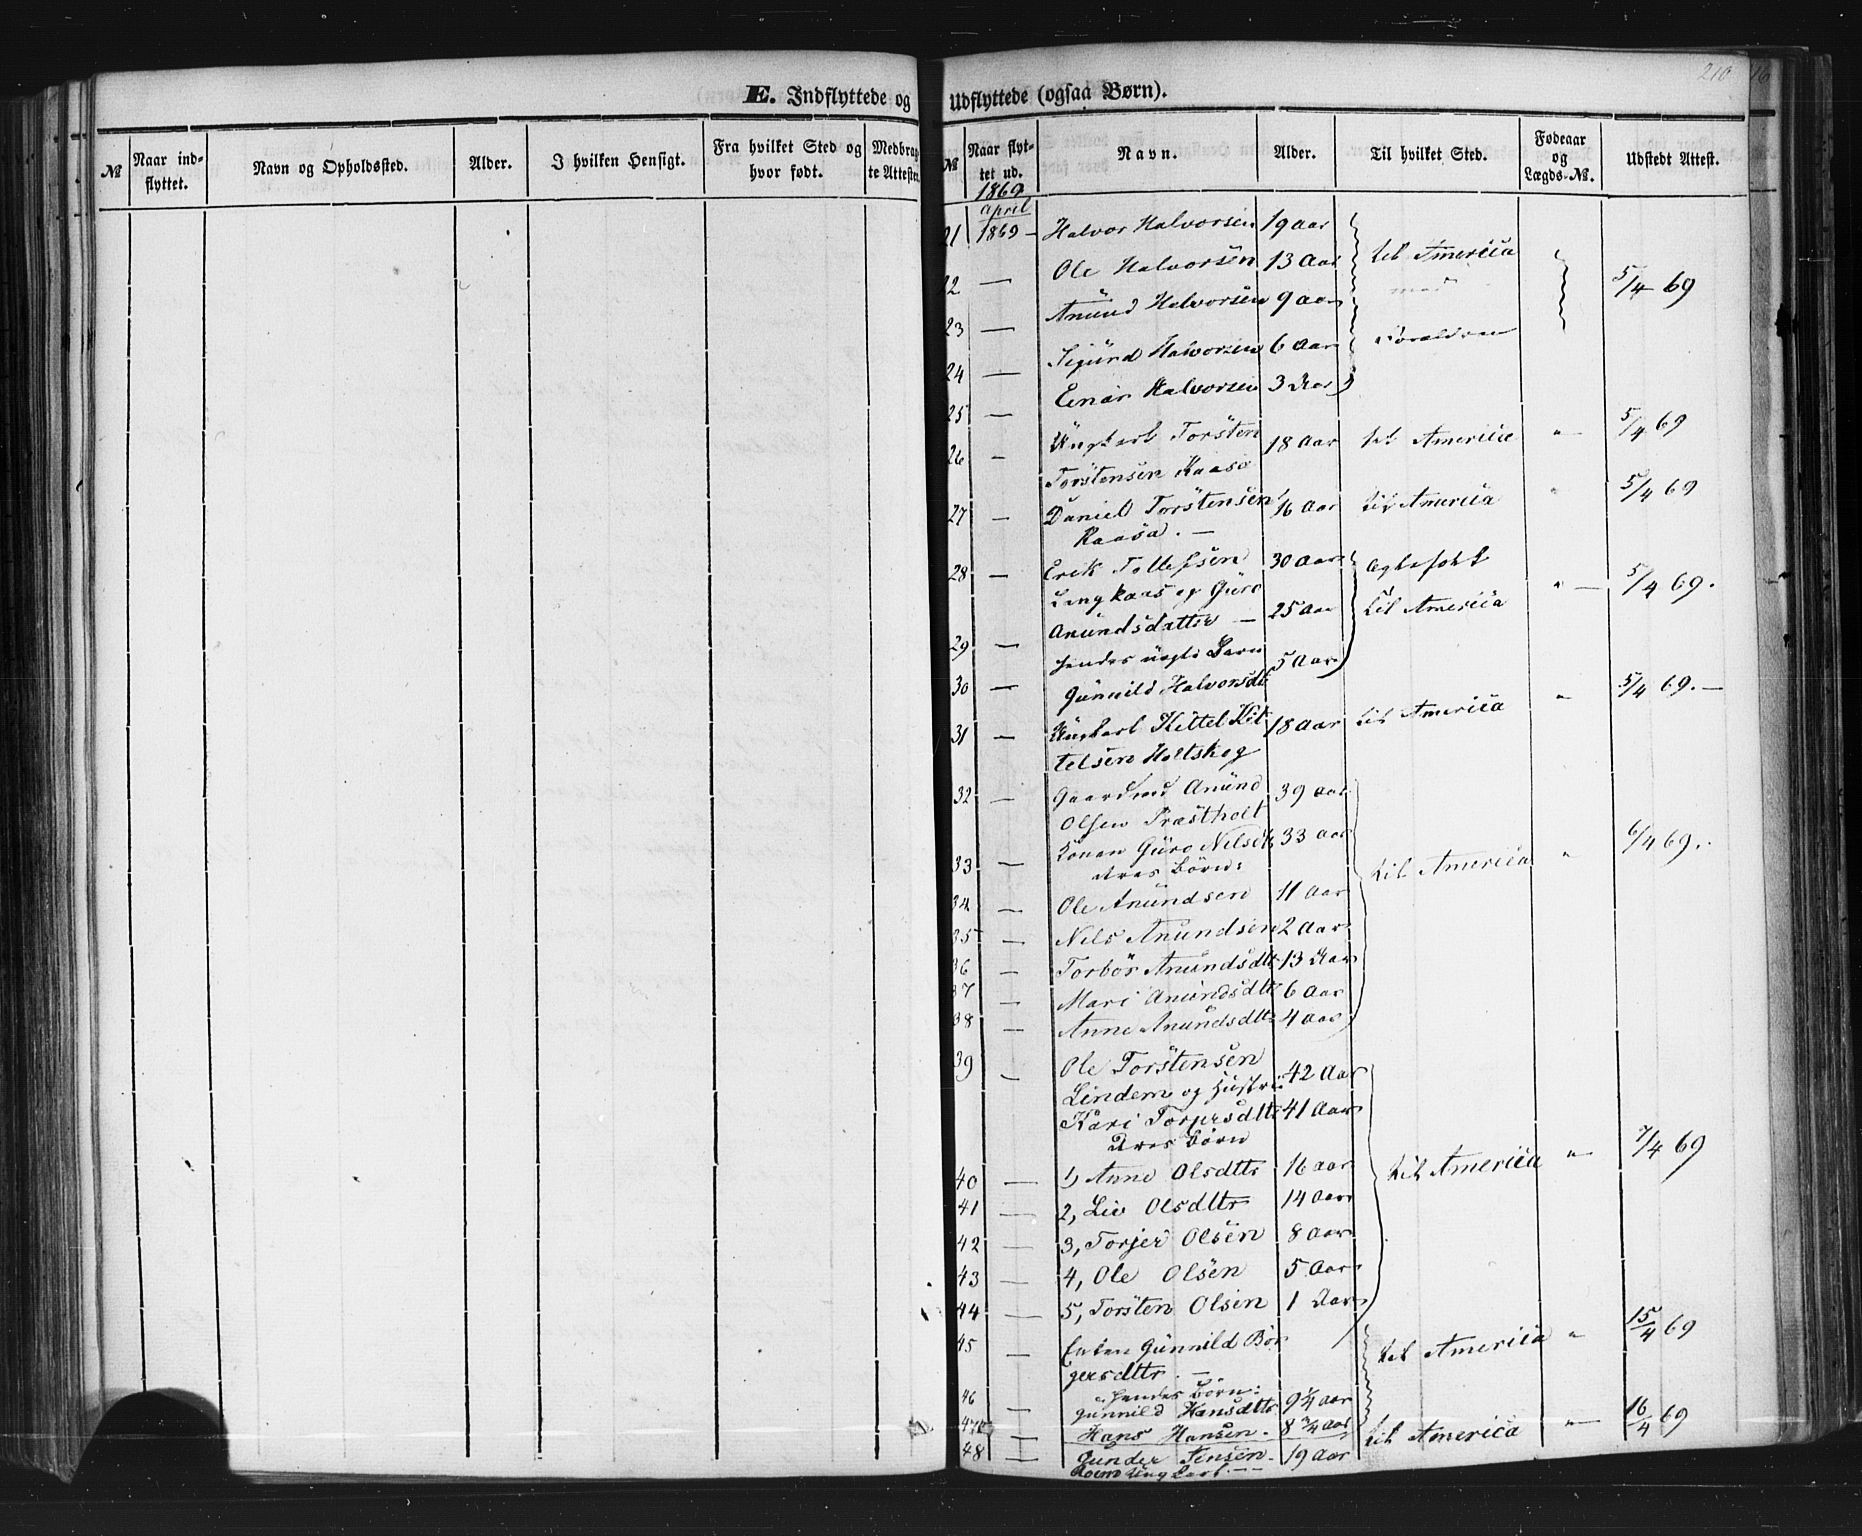 210
E. Indflyttede og Udflyttede (ogsaa Børn).
№ Naar ind-flyttet. Navn og Opholdssted. Alder. I hvilken Hensigt. Fra hvilket Sted og hvor født. Medbrag-te Attester.
№ Naar flyt-tet ud. Navn. Alder. Til hvilket Sted. Fødeaar og Lægds-№. Udstedt Attest.
1869
April
21 1869 – Halvor Halvorsen 19 Aar
22 — Ole Halvorsen 13 Aar til America
23 — Anund Halvorsen 9 Aar med 5/4 69
24 — Sigurd Halvorsen 6 Aar Forældrene
25 — Einar Halvorsen 3 Aar
26 – Ungkarl Torsten 18 Aar til America " 5/4 69
Torstensen Raasa
27 – Daniel Torstensen 16 Aar til America " 5/4 69
Raasa. —
28 — Erik Tollefsen 30 Aar Ægtefolk
og Guro
29 — Anundsdatter — 25 Aar til America " — 5/4 69.
hendes uægte Barn
30 — Gunnild Halvorsdt 5 Aar
31 – Ungkarl Kittel Kit- 18 Aar til America " 5/4 69. —
telsen Holtskog
32 — Gaardmd Anund 39 Aar
Olsen Præstholt
33 — Konen Guro Nilsdt 33 Aar til America " 6/4 69.
deres Børn:
34 — Ole Anundsen 11 Aar
35 – Nils Anundsen 2 Aar
36 — Torbør Anundsdtr 13 Aar
37 — Mari Anundsdtr 6 Aar
38 — Anne Anundsdtr 4 Aar
39 – Ole Torstensen 42 Aar
Lindem og Hustru
Kari Torjersdtr 41 Aar
deres Børn
40 — 1, Anne Olsdtr 16 Aar til America " 7/4 69
41 — 2, Liv Olsdtr 14 Aar
42 — 3, Torjer Olsen 8 Aar
43 — 4, Ole Olsen 5 Aar
44 — 5, Torsten Olsen 1 Aar
45 — Enken Gunnild Bør- til America " 15/4 69
gersdtr. —
46 — hendes Børn:
Gunnild Hansdtr 9 1/4 Aar
47 — Hans Hansen. 8 3/4 Aar
48 — Gunder Jensen. 19 Aar til America " — 16/4 69
Ungkarl. —